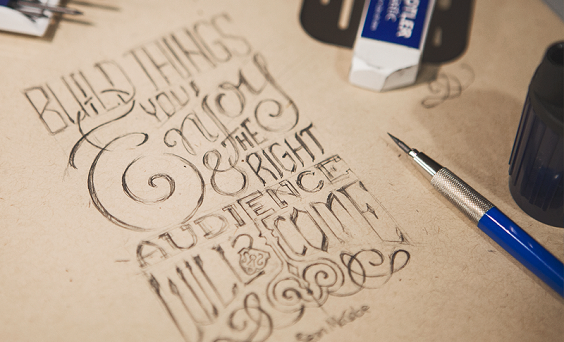 BUILD THINGS
YOU'LL
Enjoy
& THE
RIGHT
AUDIENCE
WILL COME
Sean McCabe
STAEDTLER